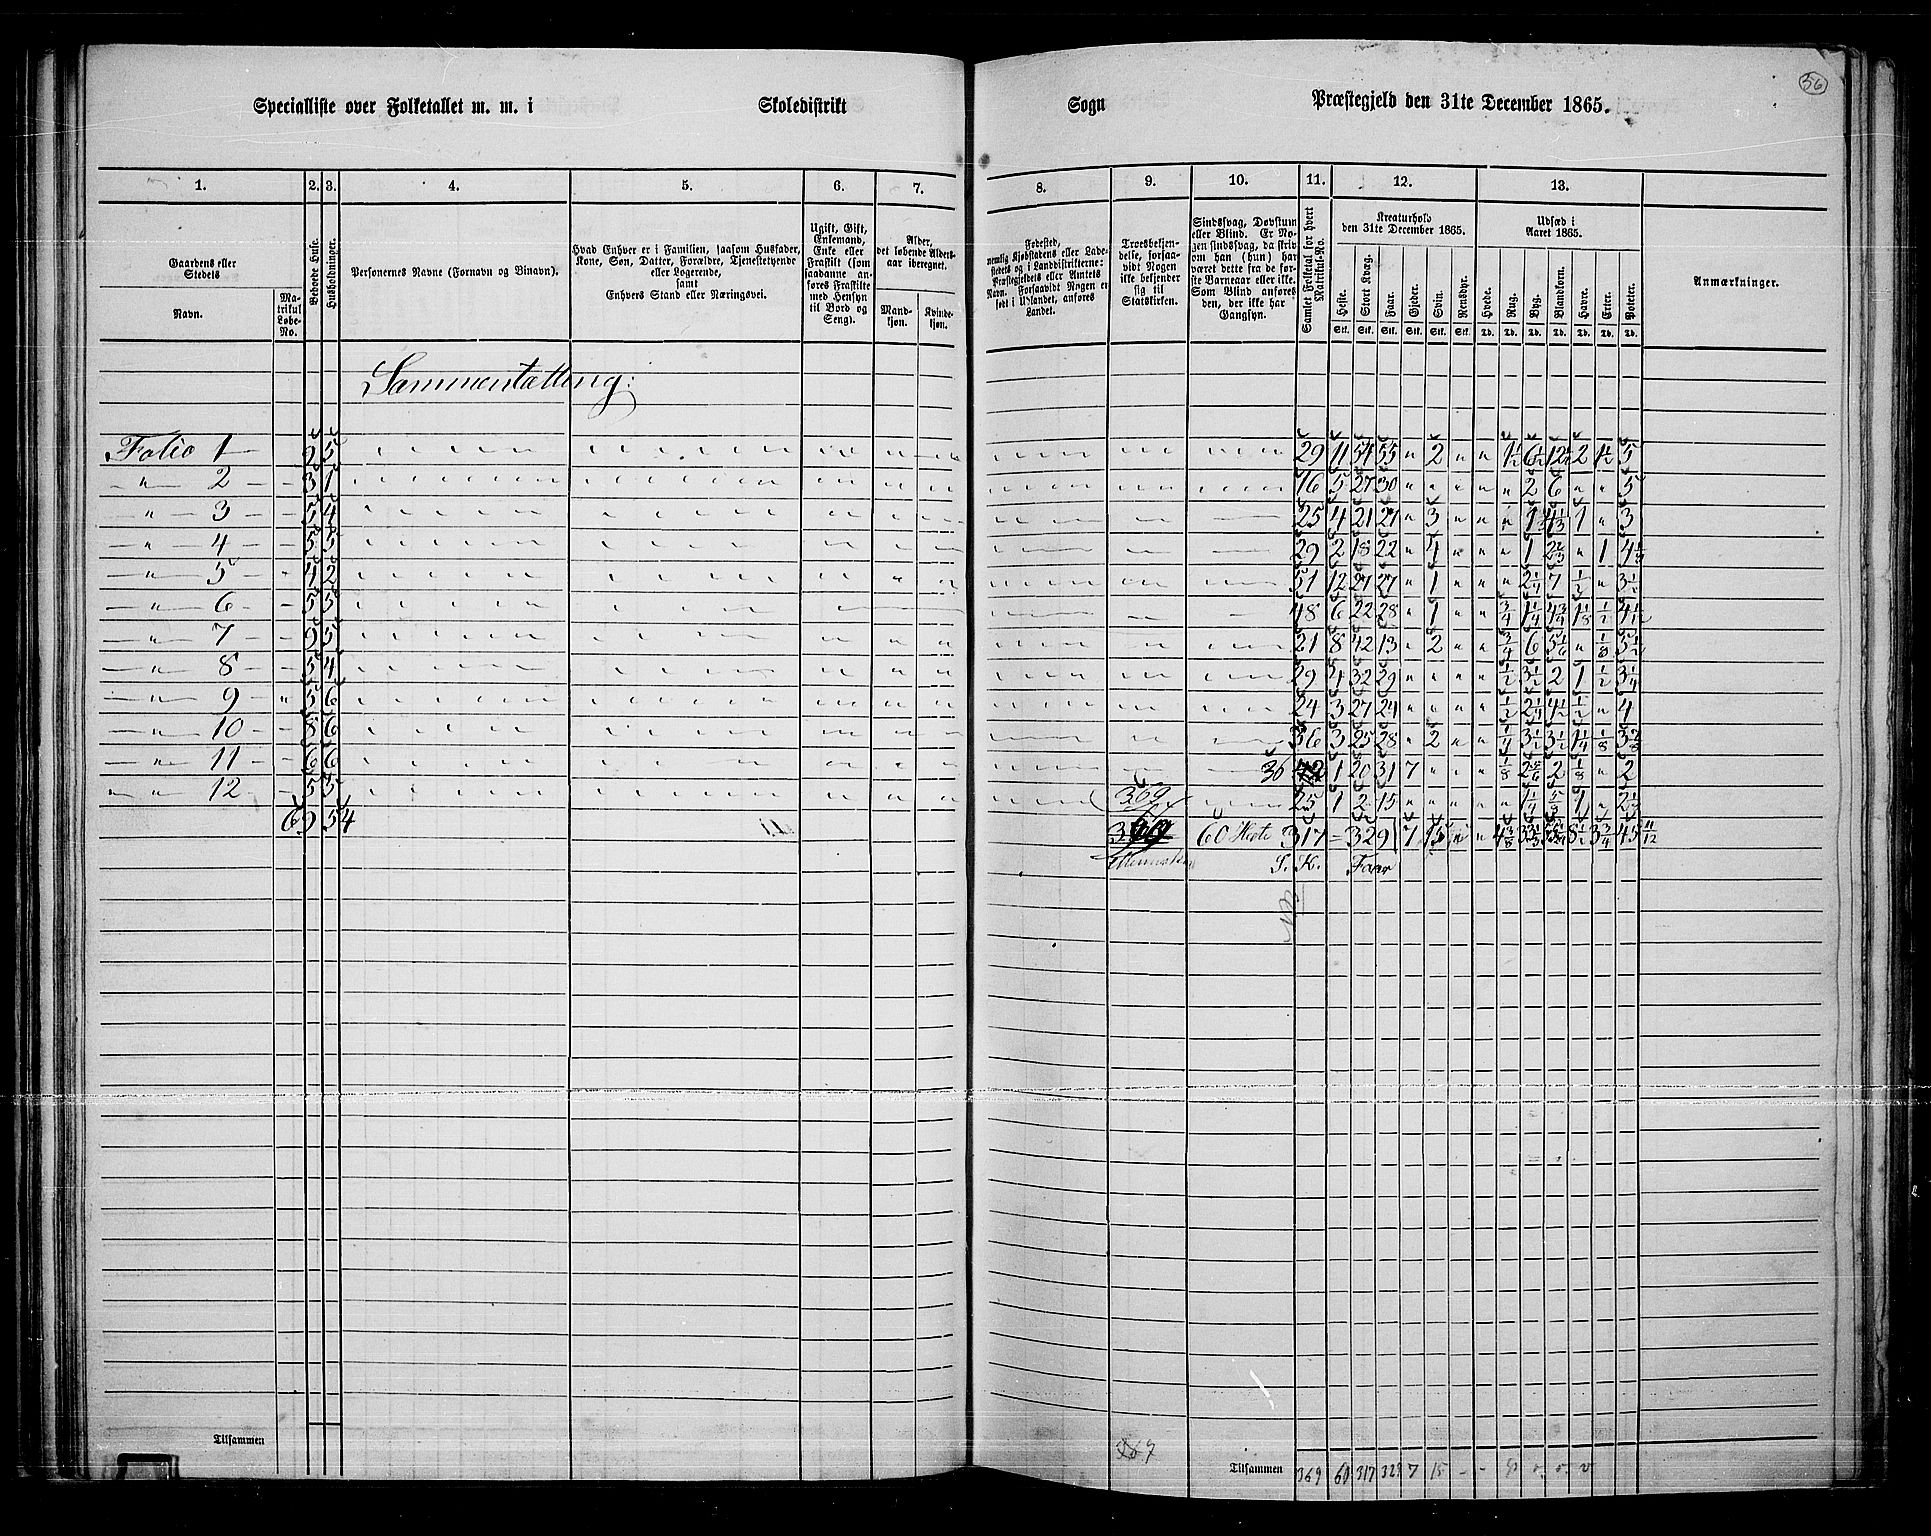 56
Specialliste over Folketallet m. m. i Skoledistrikt Sogn Præstegjeld den 31te December 1865.
1. 2. 3. 4. 5. 6. 7. 8. 9. 10. 11. 12. 13.
Gaardens eller Stedets
Navn.
Matrikul Løbe-No.
Beboede Huse.
Husholdninger.
Personernes Navne (Fornavn og Binavn).
Hvad Enhver er i Familien, saasom Husfader, Kone, Søn, Datter, Forældre, Tjenestetyende eller Logerende, samt Enhvers Stand eller Næringsvei.
Ugift, Gift, Enkemand, Enke eller Fraskilt (som saadanne anføres Fraskilte med Hensyn til Bord og Seng).
Alder, det løbende Aldersaar iberegnet.
Mandkjøn.
Kvindekjøn.
Fødested, nemlig Kjøbstadens eller Ladestedets og i Landdistrikterne: Præstegjeldets eller Amtets Navn. Forsaavidt Nogen er født i Udlandet, anføres Landet.
Troesbekjendelse, forsaavidt Nogen ikke bekjender sig til Statskirken.
Sindssvag, Døvstum eller Blind. Er Nogen sindssvag, da skrives om han (hun) har været dette fra de første Barneaar eller ikke. Som Blind anføres den, der ikke har Gangsyn.
Samlet Folketal for hvert Matrikul-No.
Kreaturhold den 31te December 1865.
Heste. Stort Kvæg. Faar. Gjeder. Svin. Rensdyr.
Stk. Stk. Stk. Stk. Stk. Stk.
Udsæd i Aaret 1865.
Hvede. Rug. Byg. Blandkorn. Havre. Erter. Poteter.
Td. Td. Td. Td. Td. Td. Td.
Anmærkninger.
Sammentælling:
Folio 1 9 5 29 11 54 55 " 2 " " 1½ 6½ 12½ 2 1½ 5
" 2 3 1 16 5 27 30 " " " " " 2 6 " " 5
" 3 5 4 25 4 21 27 " 3 " " " 1 4⅓ 1 " 3
" 4 5 5 29 2 18 22 " 4 " " " 1 2⅔ " 1 4⅓
" 5 4 2 51 12 27 27 " 1 " " " 2¼ 7 ½ " 3½
" 6 5 5 48 6 22 28 " 1 " " ¾ 1¼ 4¾ 1⅛ ½ 4½
" 7 9 5 21 8 42 13 " 2 " " ¾ 6 5⅙ " ⅛ 5½
" 8 5 4 29 4 32 29 " " " " ½ 3½ 2 1 ½ 3¼
" 9 " 5 6 24 3 27 24 " " " " ½ 2¼ 4½ ½ " 4
" 10 8 6 36 3 25 28 " 2 " " ¼ 3½ 3½ 1¼ ⅛ 3⅔
" 11 6 6 36 1 20 31 7 " " " ⅛ 2⅚ 2 ⅛ " 2
" 12 5 5 369 25 1 2 15 " " " " " 1¼ ⅝ 1 " 2⅔
69 54 60 Heste 317 = 329 7 15 " " 4⅜ 8½ 3¾ 45 11/12
Mennesker S. K. Faar
369
Tilsammen
Tilsammen 369 60 317 329 7 15 - -